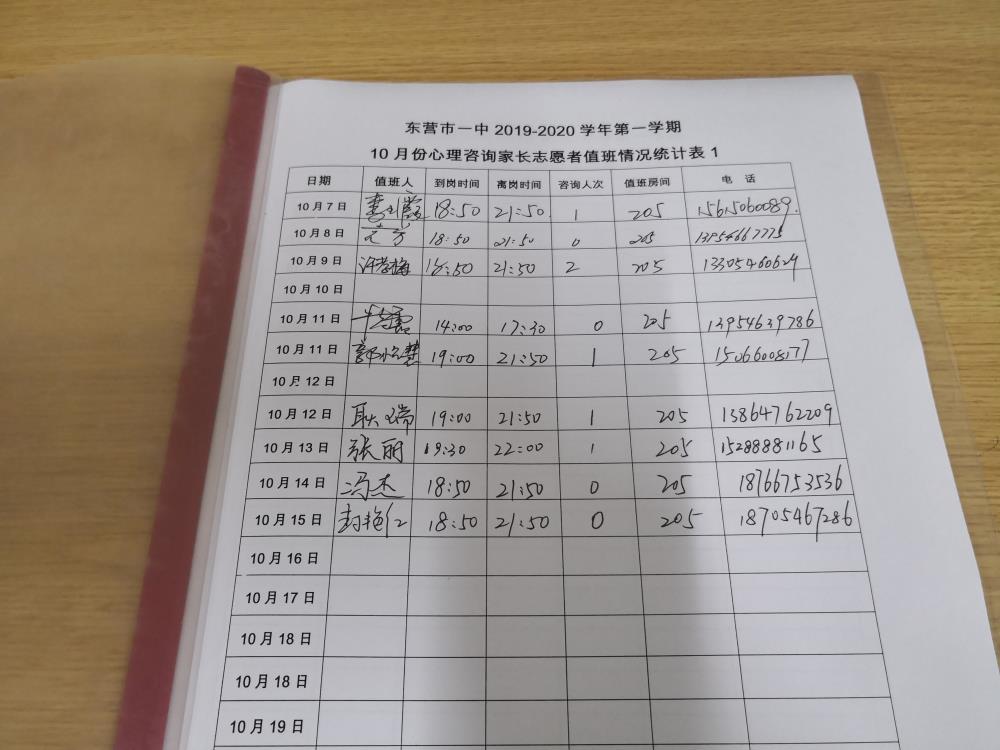 东营市一中 2019-2020 学年第一学期
10 月份心理咨询家长志愿者值班情况统计表 1
日期 值班人 到岗时间 离岗时间 咨询人次 值班房间 电 话
10 月 7 日 18:50 21:50. 1 205 15615060089.
10 月 8 日 18:50 21:50 0 205
10 月 9 日 18:50 21:50 2 205 13305460624
10 月 10 日
10 月 11 日 14:00 17:30 0 205 13954639786
10 月 11 日 19:00 21:50 1 205
10 月 12 日
10 月 12 日 耿瑞 19:00 21:50 1 205 13864762209
10 月 13 日 张丽 19:30 22:00 1 205 15288881165
10 月 14 日 冯杰 18:50 21:50 0 205 18766753536
10 月 15 日 18:50 21:50 0 205 18705467286
10 月 16 日
10 月 17 日
10 月 18 日
10 月 18 日
10 月 19 日